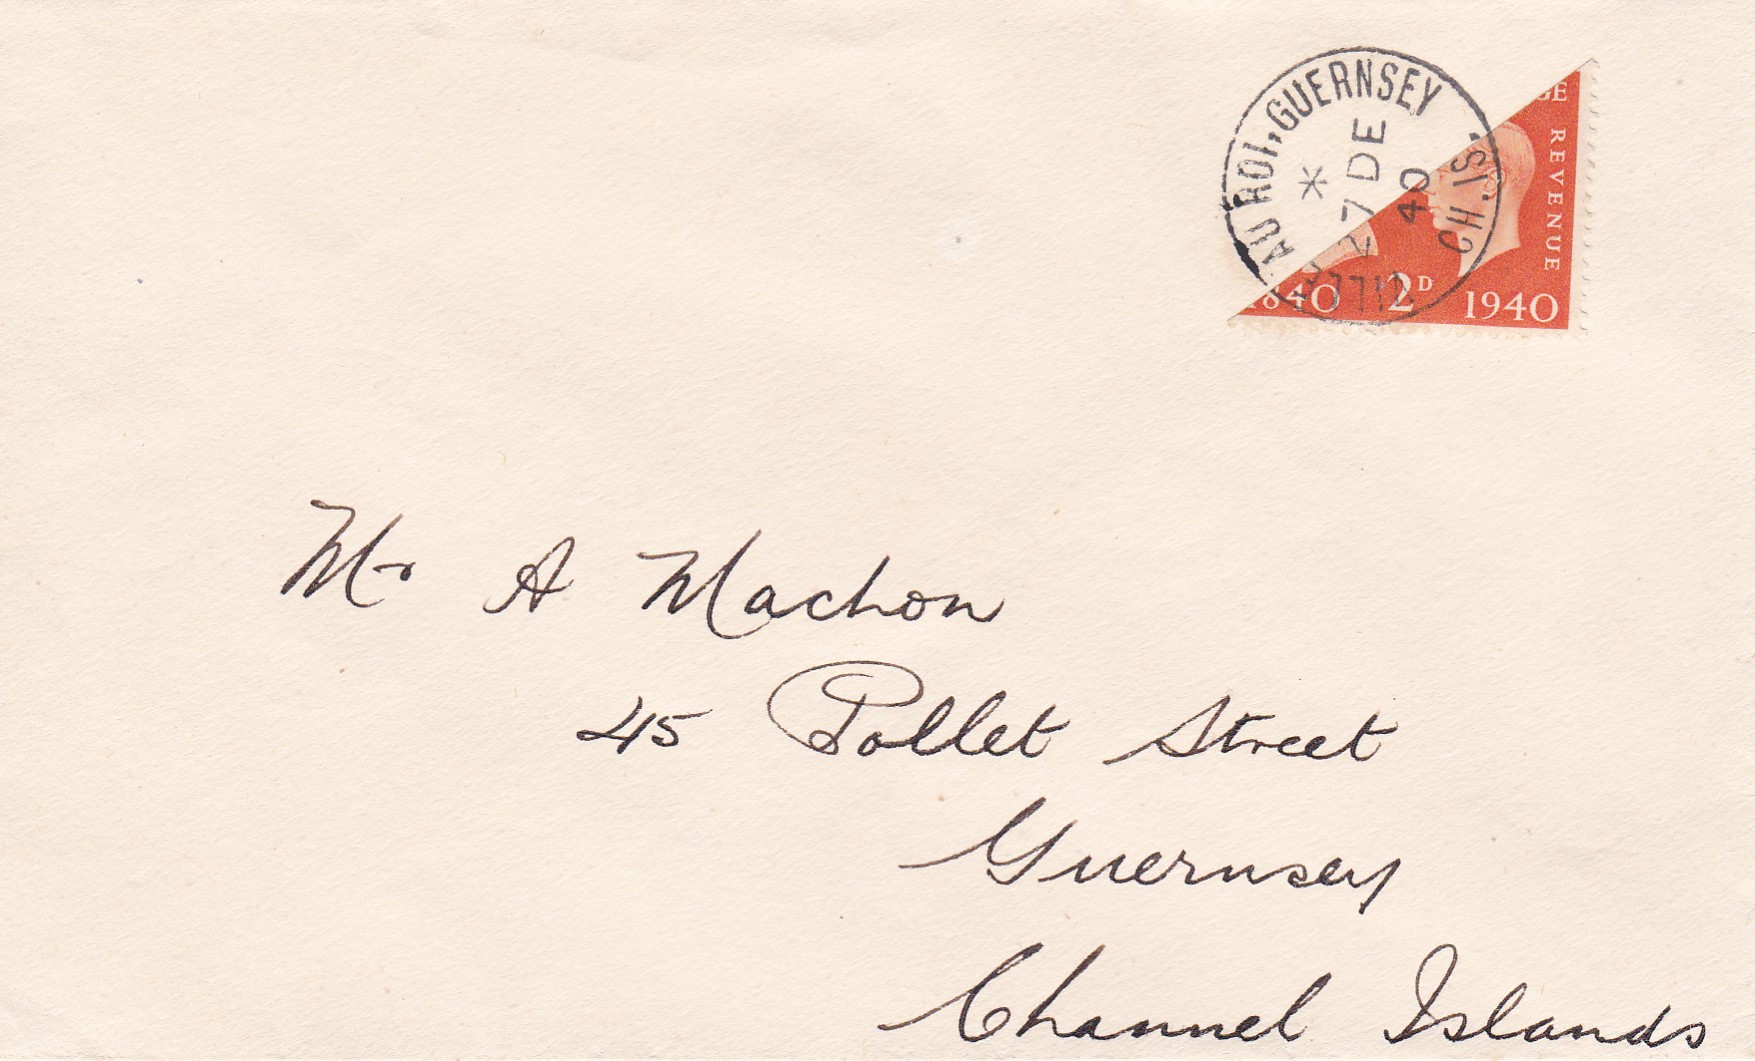 VILLE AU ROI, GUERNSEY
CH. IS.
*
27 DE
40
GE
REVENUE
1840 2D 1940
Mr A Machon
45 Pollet Street
Guernsey
Channel Islands